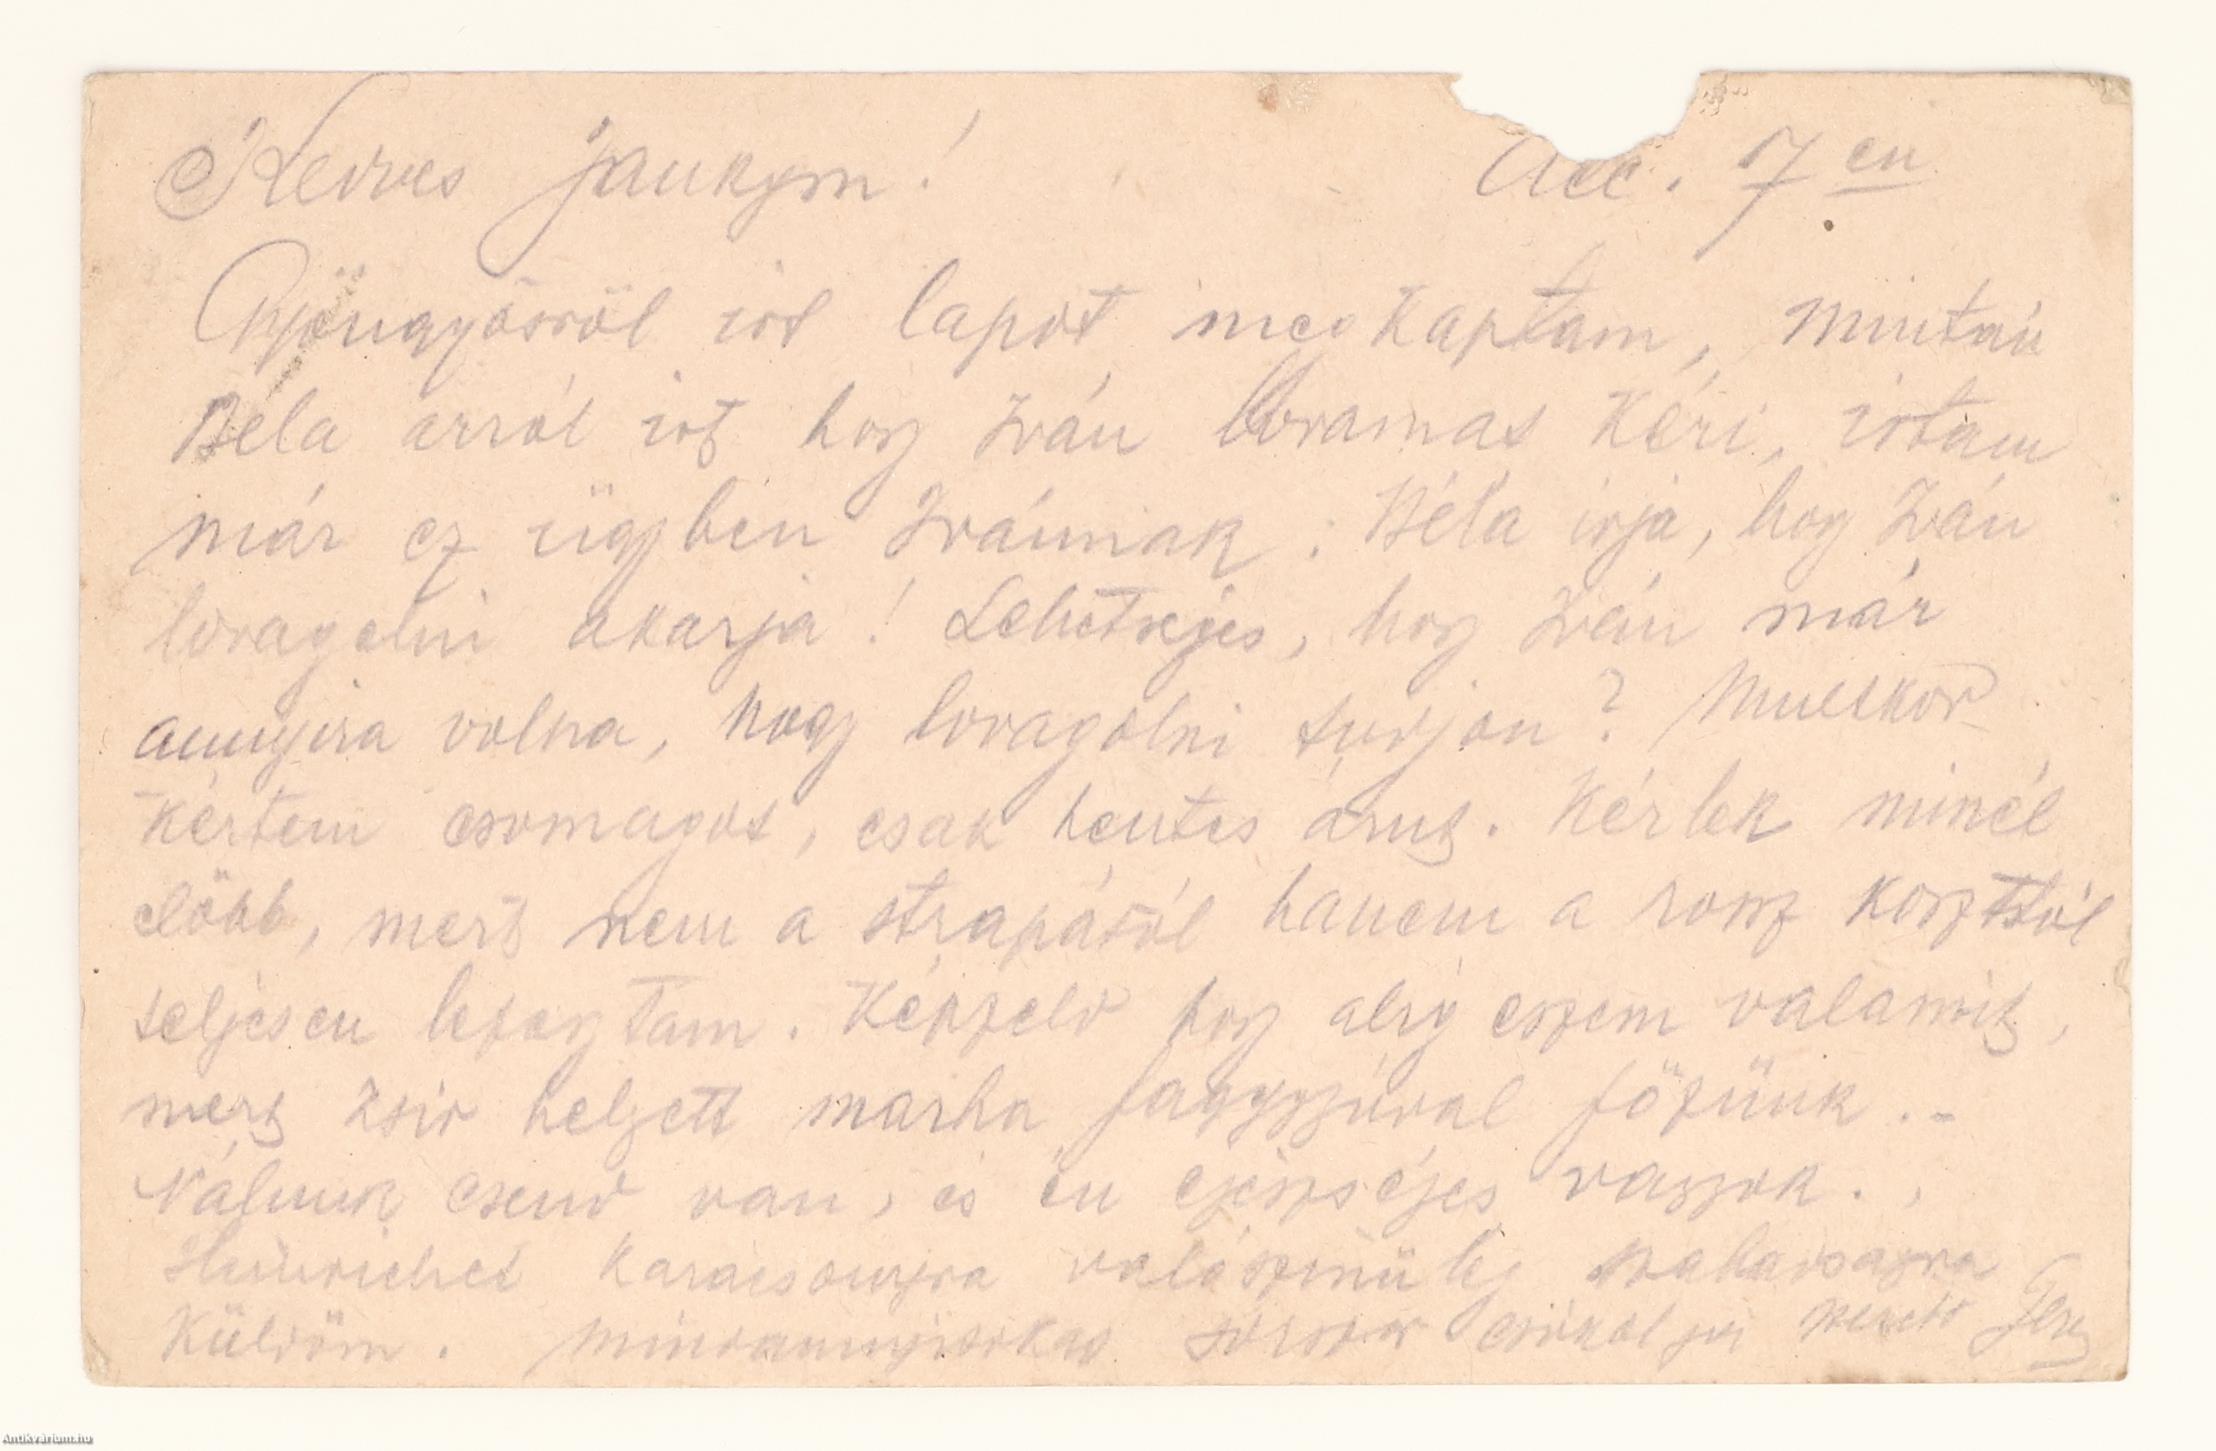 Kedves Jankym! Dec. 17 en
Gyöngyösröl irt lapot megkaptam, miután
Béla arról irt hogy Iván lovamat kéri, irtam
már ez ügyben Ivánnak. Béla irja, hogy Iván
lovagolni akarja! Lehetséges, hogy Iván már
annyira volna, hogy lovagolni tudjon? Multkor
kértem csomagot, csak hentes árut. Kérlek minél
elöbb, mert nem a strapától hanem a rossz koszttól
teljesen lefogytam. Képzeld hogy alig eszem valamit,
mert zsir helyett marha fagygyúval fözünk. -
Nálunk csend van, és én egészséges vagyok.
Heinrichet karácsonyra valószinüleg szabadságra
küldöm. Mindannyitokat sokszor csókol szeretö
Antikvárium.hu